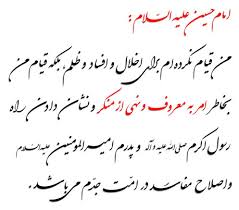 امام حسین علیه السلام :
من قیام نکرده ام برای اخلال و افساد و ظلم بلکه قیام من
بخاطر امر به معروف و نهی از منکر و نشان دادن راه
رسول اکرم صلی الله علیه و آله و پدرم امیرالمومنین علیه السلام
و اصلاح مفاسد در امت جدم می باشد .